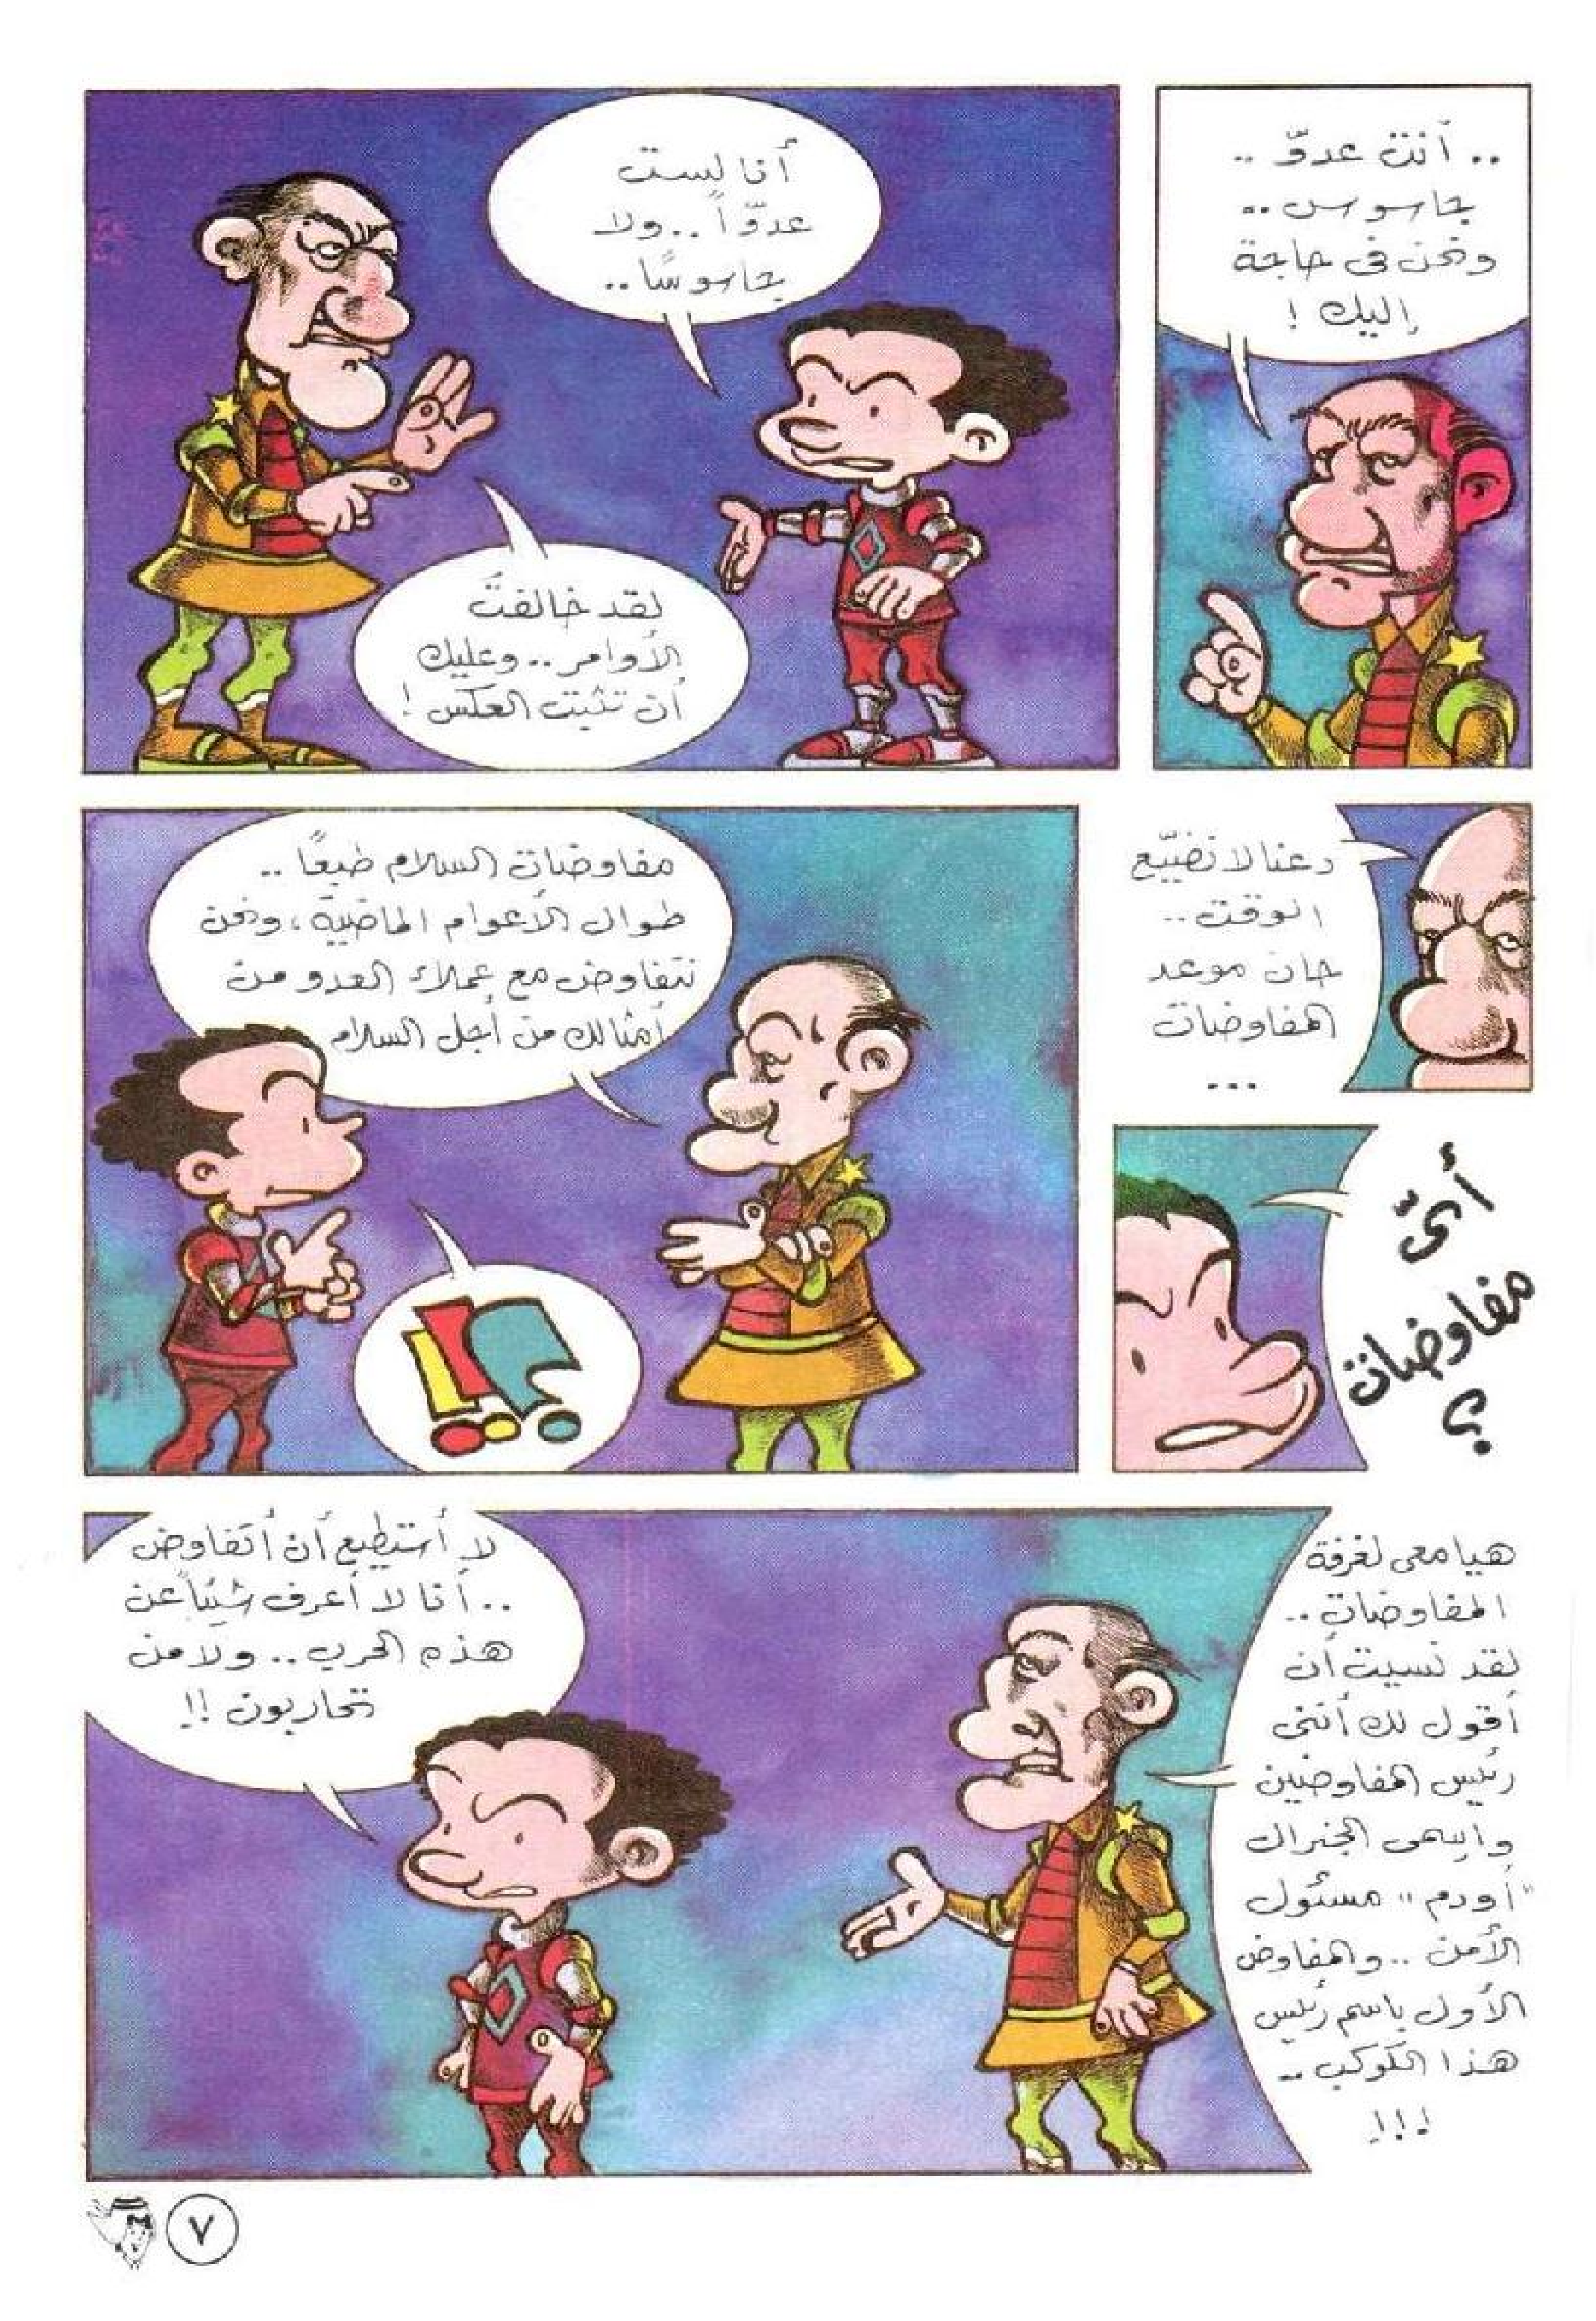 .. أنت عدوّ ..
جاسوس ..
ونحن فى حاجة
إليك !
أنا لست
عدوّاً .. ولا
جاسوسًا ..
لقد خالفتَ
الأوامر .. وعليك
أن تثبت العكس !
دعنا لا نضيّع
الوقت ..
حان موعد
المفاوضات
...
أىّ
مفاوضات
؟
مفاوضات السلام طبعًا ..
طوال الأعوام الماضية ، ونحن
نتفاوض مع عملاء العدو من
أمثالك من أجل السلام
!!؟
هيا معى لغرفة
المفاوضات ..
لقد نسيت أن
أقول لك أننى
رئيس المفاوضين
واسمى الجنرال
"أودم" مسئول
الأمن .. والمفاوض
الأول باسم رئيس
هذا الكوكب ..
!!!
لا أستطيع أن أتفاوض
.. أنا لا أعرف شيئاً عن
هذه الحرب .. ولا من
تحاربون !!
٧